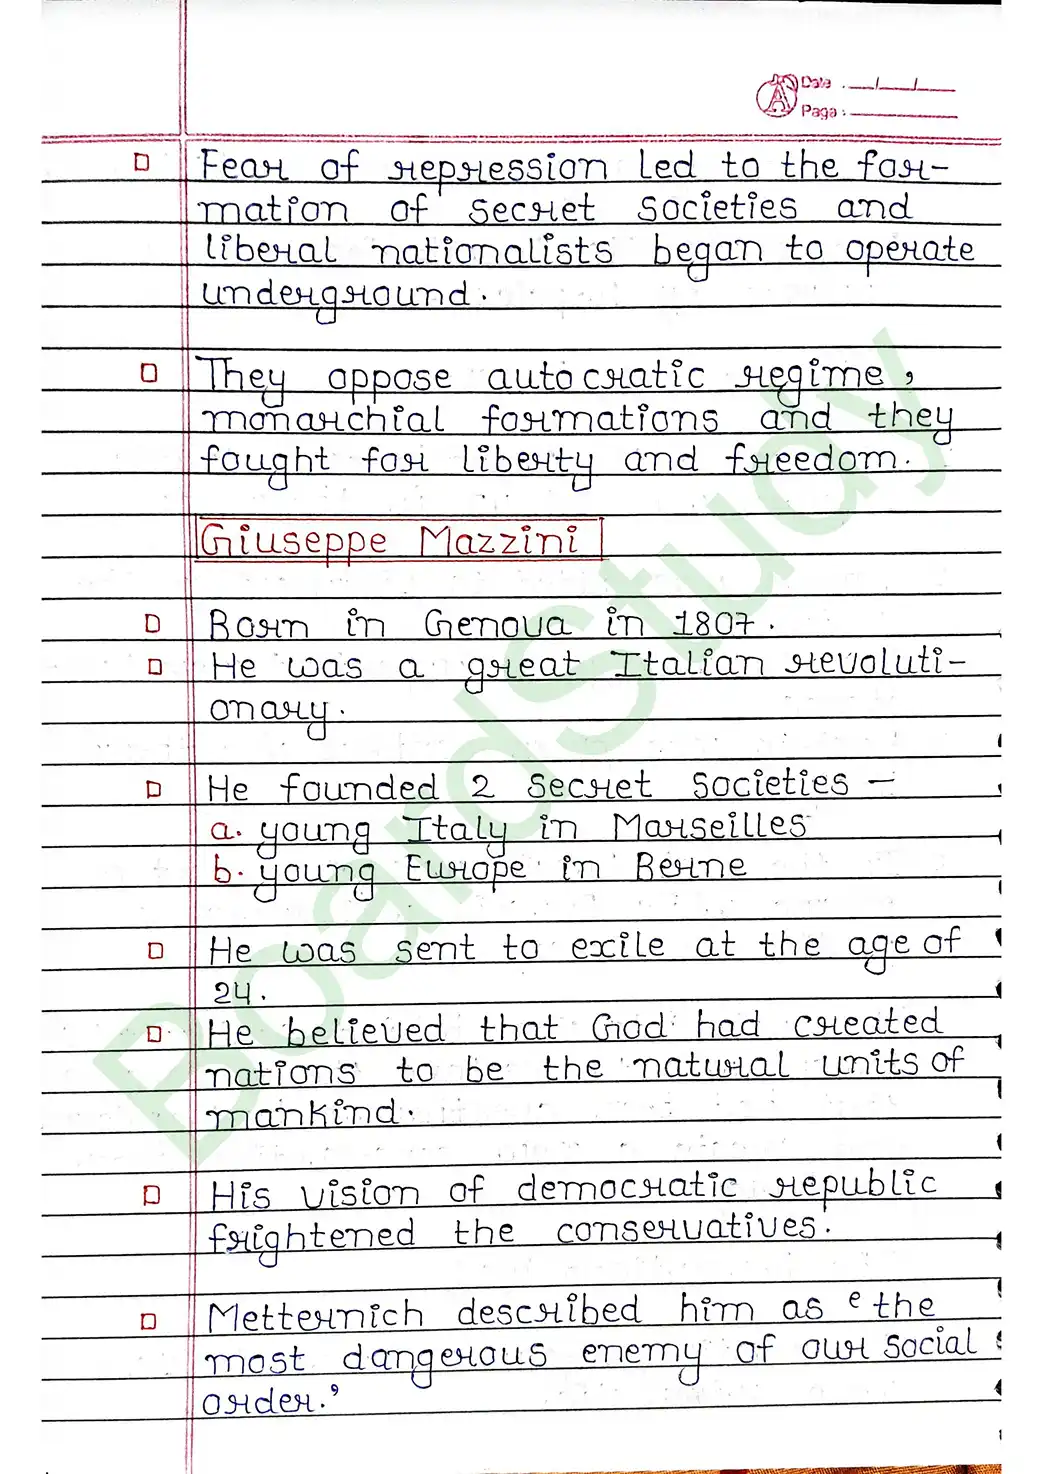 Date : __/__/__
Page :
Fear of repression led to the for-
mation of secret societies and
liberal nationalists began to operate
underground.
They oppose autocratic regime,
monarchial formations and they
fought for liberty and freedom.
Giuseppe Mazzini
Born in Genova in 1807.
He was a great Italian revoluti-
onary.
He founded 2 secret societies —
a. young Italy in Marseilles
b. young Europe in Berne
He was sent to exile at the age of
24.
He believed that God had created
nations to be the natural units of
mankind.
His vision of democratic republic
frightened the conservatives.
Metternich described him as ‘the
most dangerous enemy of our social
order.’
BoardStudy